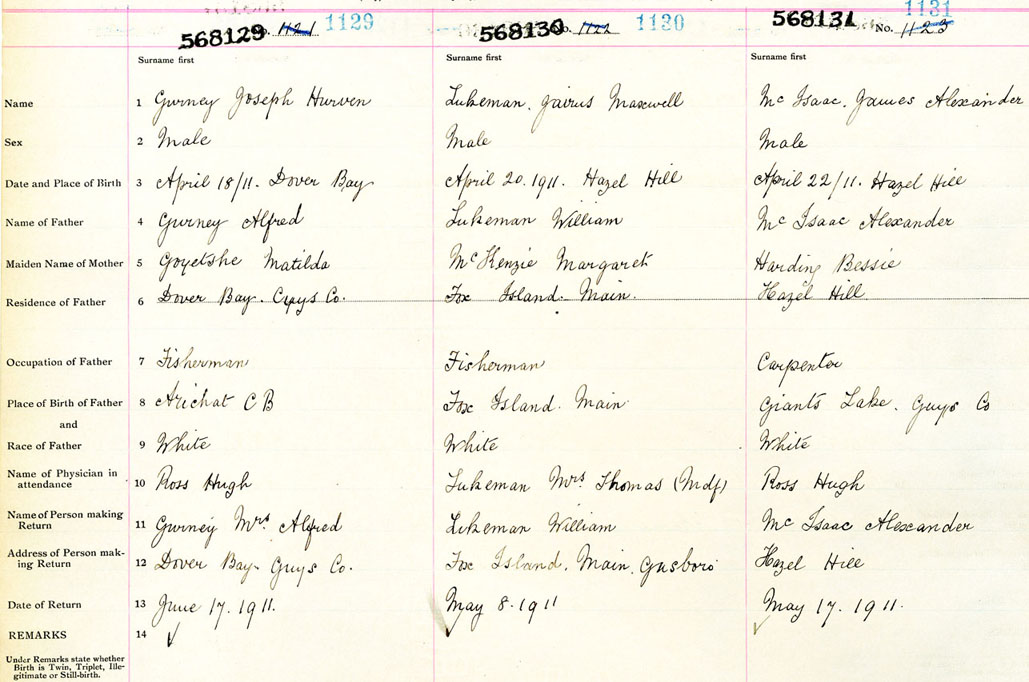 568129 No. 1121 1129 568130 No. 1122 1130 568131 No. 1123 1131
Surname first Surname first Surname first
Name 1 Gurney Joseph Hurven Lukeman, Jairus Maxwell Mc Isaac, James Alexander
Sex 2 Male Male Male
Date and Place of Birth 3 April 18/11. Dover Bay April 20. 1911. Hazel Hill April 22/11. Hazel Hill
Name of Father 4 Gurney Alfred Lukeman William Mc Isaac Alexander
Maiden Name of Mother 5 Goyetshe Matilda McKenzie Margaret Harding Bessie
Residence of Father 6 Dover Bay. Co. Fox Island. Main. Hazel Hill
Occupation of Father 7 Fisherman Fisherman Carpenter
Place of Birth of Father 8 Arichat C B Fox Island. Main Giants Lake. Guys Co
and
Race of Father 9 White White White
Name of Physician in
attendance 10 Ross Hugh Lukeman Mrs Thomas (Mdf) Ross Hugh
Name of Person making
Return 11 Gurney Mrs Alfred Lukeman William Mc Isaac Alexander
Address of Person mak-
ing Return 12 Dover Bay. Guys Co. Fox Island. Main. Gusboro Hazel Hill
Date of Return 13 June 17. 1911. May 8. 1911 May 17. 1911.
REMARKS 14 ✓ ✓ ✓
Under Remarks state whether
Birth is Twin, Triplet, Ille-
gitimate or Still-birth.